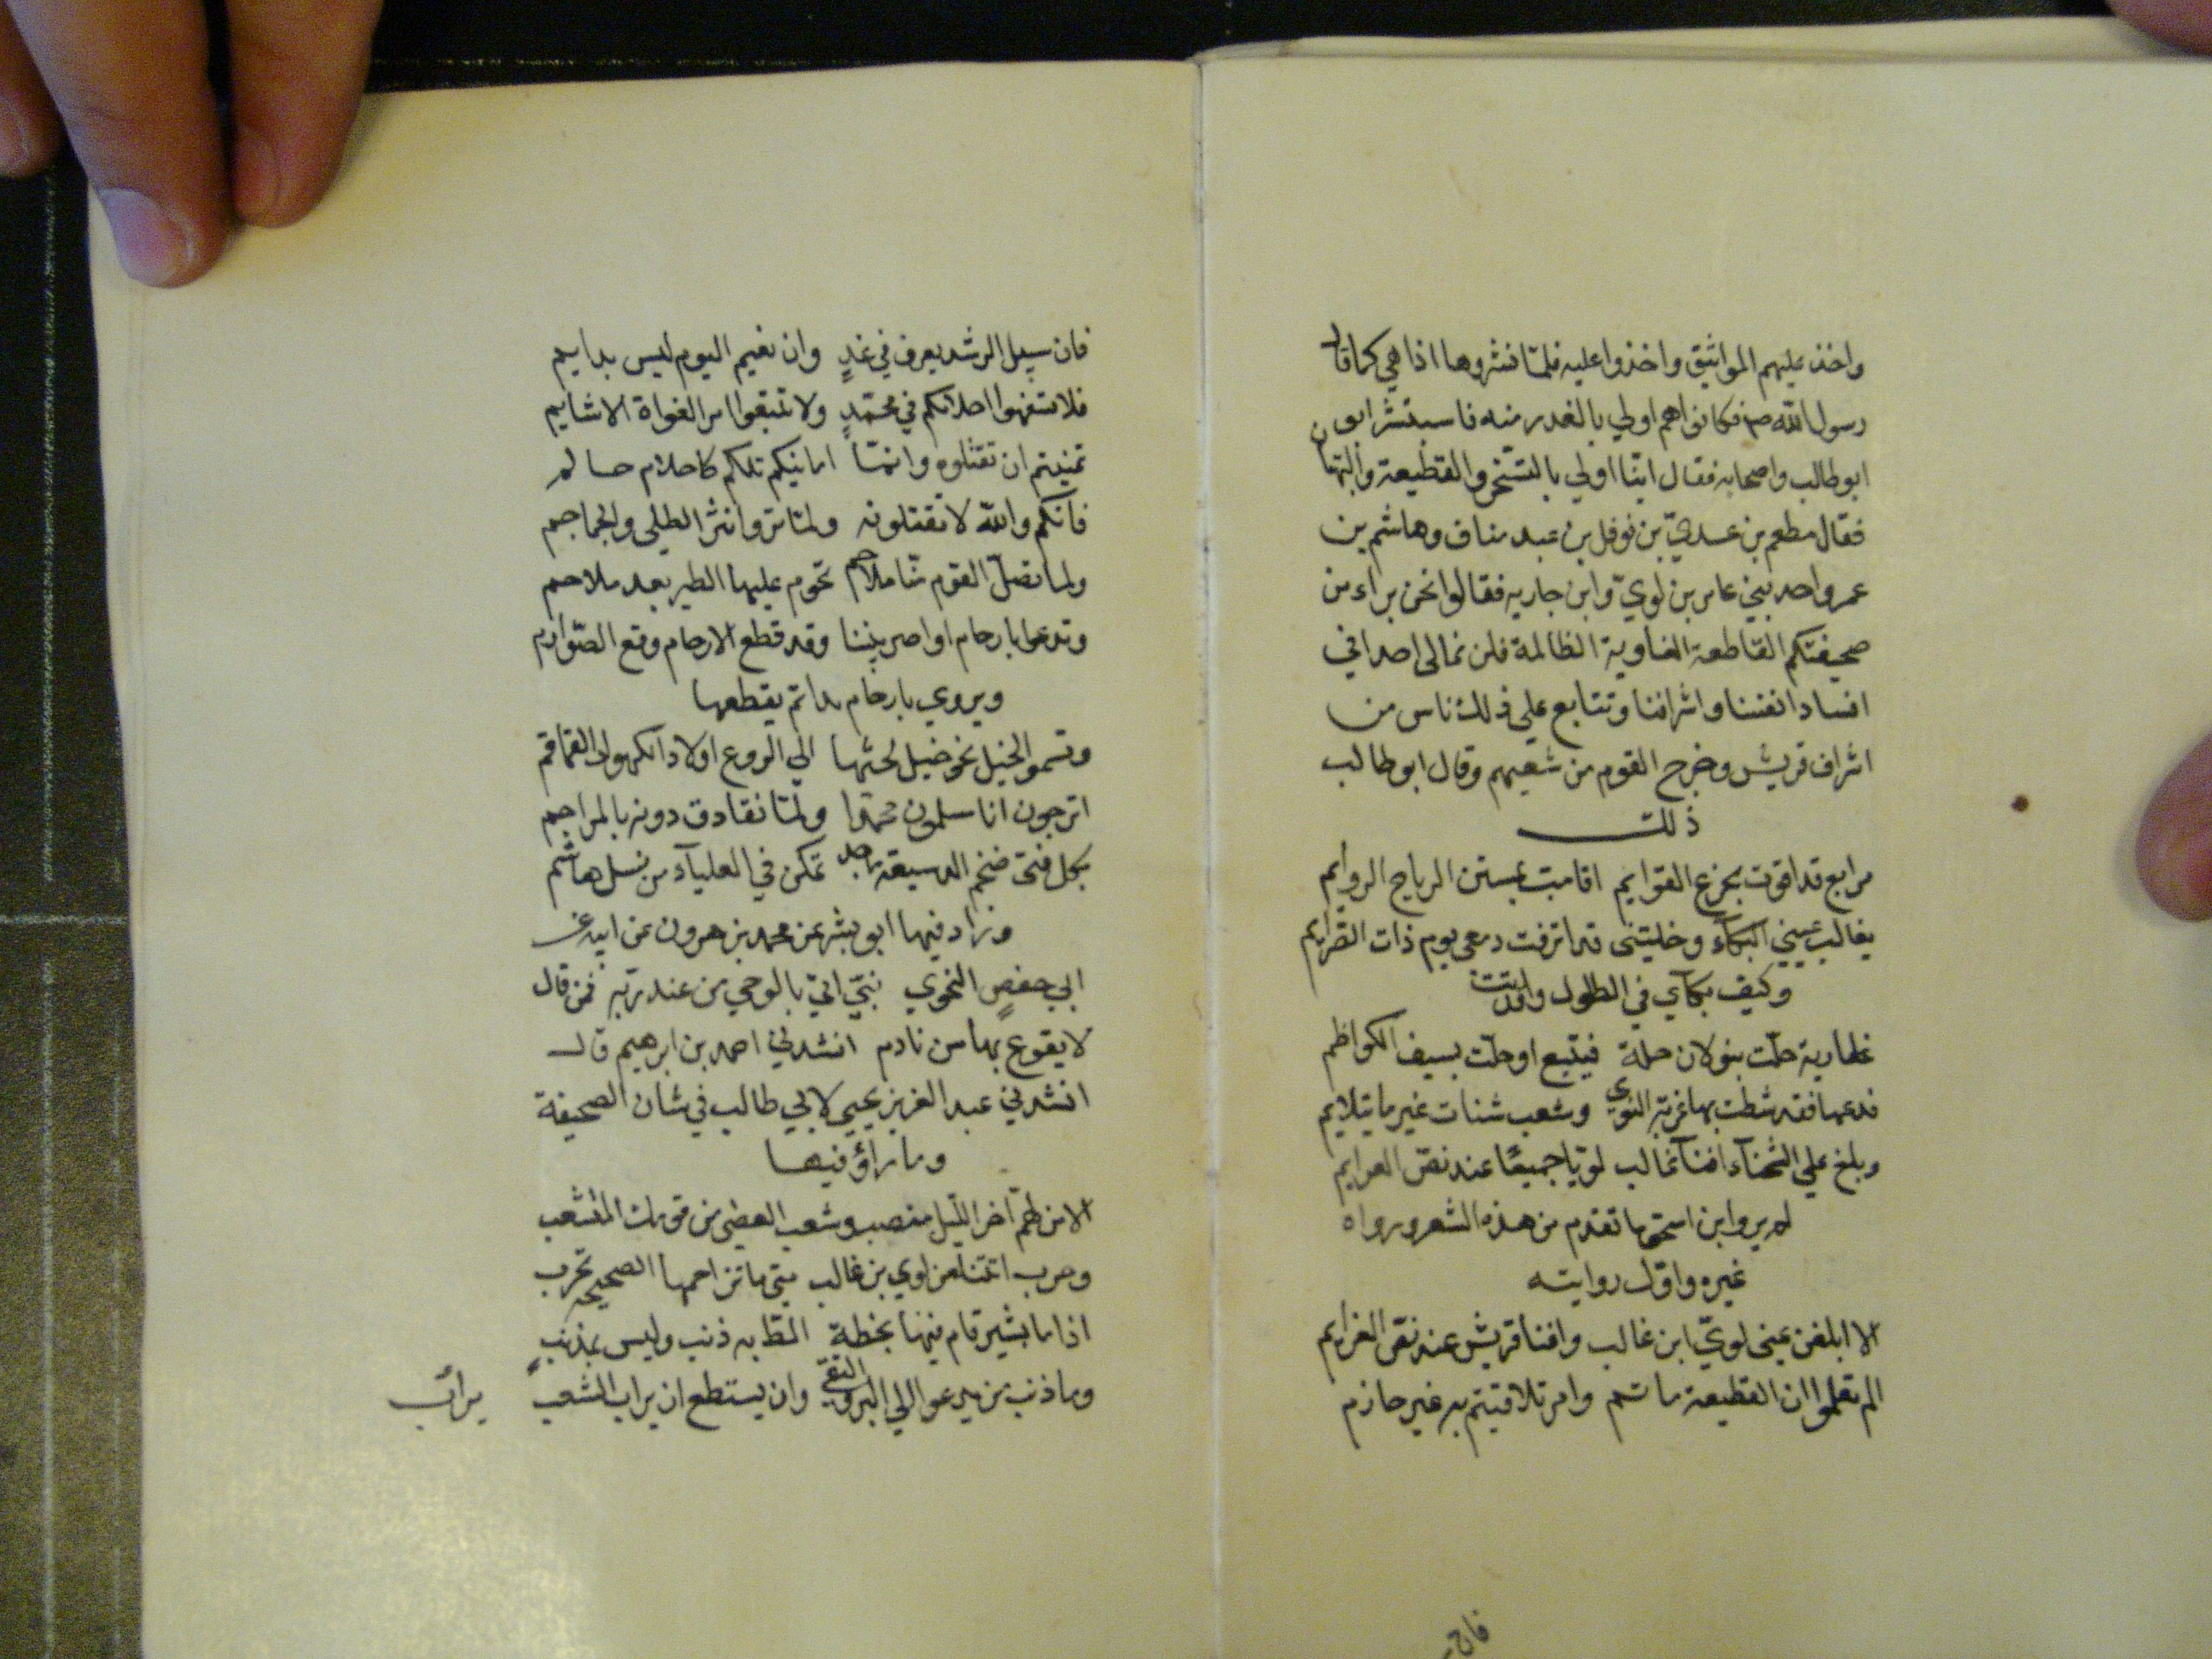 واخذ عليهم المواثيق واخذوا عليه فلمّا نشروها اذا هي كما قال
رسول الله صم فكانوا هم اولي بالغدر منه فاستبشر ابو
ابو طالب واصحابه فقال ايّنا اولي بالسّحر والقطيعة والبهتان
فقال مطعم بن عديّ بن نوفل بن عبد مناف وهاشم بن
عمرو احد بني عامر بن لويّ وابن جاريه فقالوا نحن براء من
صحيفتكم القاطعة الغاوية الظالمة فلن نمالى احدا في
افساد انفسنا واشرافنا وتتابع علي ذلك ناس من
اشراف قريش وخرج القوم من شعبهم وقال ابو طالب
ذلك
مرابع قد اقوت بجزع القوايم اقامت بمستن الرياح الروايم
يغالب عيني البكآء وخليتنى قد انزفت دمعى يوم ذات الصّرايم
وكيف بكآي في الطلول واقدتت
غفارية حلّت ببولان حلة فينبع او حلّت بسيف الكواظم
فدعها فقد شطت بها غربة النوي وشعب شتات غير ما يتلايم
وبلغ علي الشحنآء افنآء غالب لويّا جميعًا عند نصّ العرايم
لم يرو ابن اسحق ما تقدم من هذه الشعر ورواه
غيره واوّل روايته
الا ابلغن عينى لويّ ابن غالب وافنا قريش عند نقض الغرايم
الم تعلموا ان القطيعة ماتم وامر تلاقيتم به غير حازم
فان
فان سبيل الرشد يعرف في غدٍ وان نعيم اليوم ليس بدايم
فلا تسفهوا احلامكم في محمّدٍ ولا تتبعوا امر الغواة الاشايم
تمنيتم ان تقتلوه وانمّا امانيكم تلكم كاحلام حالم
فانكم والله لا تقتلونه ولما تروا نثر الطلي والجماجم
ولما تضلّ القوم منّا ملاحم تحوم عليها الطير بعد ملاحم
وتدعوا بارحام اواصر بيننا وقد قطع الارحام وقع الصّوارم
ويروي بارحام بدا ثم يقطعها
وتسمو الخيل نحو خيل لحثها الي الروع اولاد الكهول القماقم
اترجون انا سلمون محمدا ولمّا نقادف دونه بالمراجم
بكل فتى ضخم الدسيعة ماجد تمكن في العلياء من نسل هاشم
وزاد فيها ابو بشر عن محمد بن هرون عن ابيه عن
ابي حفصٍ النحوي نبيّ اتيّ بالوحي من عند ربّه فمن قال
لا يقرع بها سن نادم انشدني احمد بن ابرهيم قال
انشدني عبد العزيز يحيي لابي طالب في شان الصحيفة
وما راؤ فيها
الا من لهمّ اخر الليل منصب وشعب العصى من قومك المتشعب
وحرب اتتنا من لوي بن غالب متى ما تزاحمها الصحيحه تحرب
اذا ما بشير قام فيها بخطة الظ به ذنب وليس بمذنبٍ
وما ذنب من يدعوا الي البر والتقى وان يستطع ان يراب الشعب يرائب